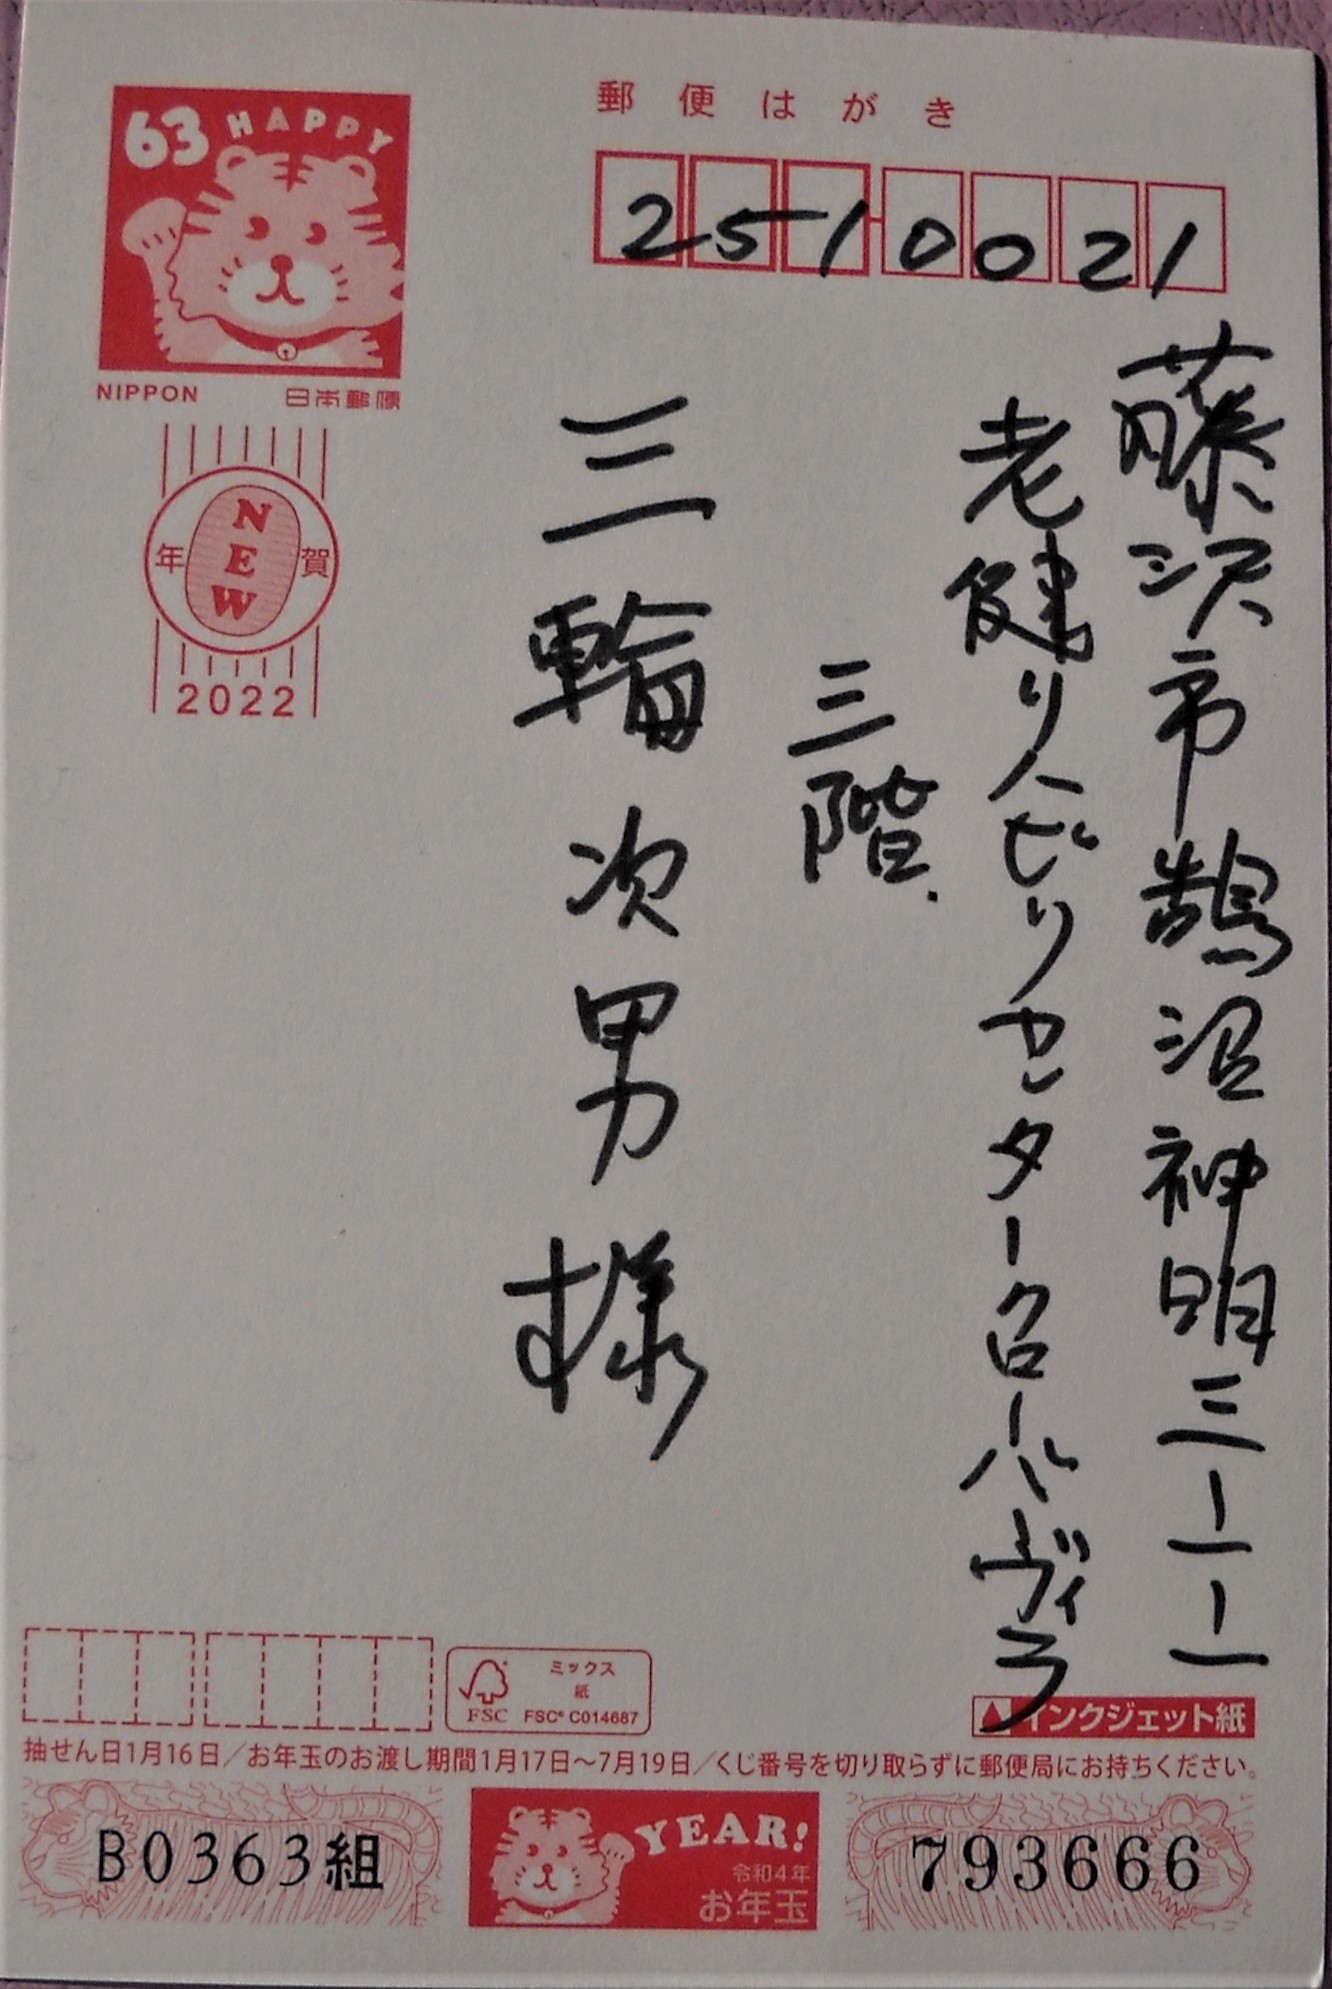 郵便はがき
63 HAPPY
NIPPON 日本郵便
年 NEW 賀
2022
251-0021
藤沢市鵠沼神明三ー一ー一
老健リハビリセンタークローバーヴィラ
三階.
三輪次男様
ミックス
紙
FSC
FSC® C014687
インクジェット紙
抽せん日1月16日/お年玉のお渡し期間1月17日~7月19日/くじ番号を切り取らずに郵便局にお持ちください。
B0363組
YEAR!
令和4年
お年玉
793666